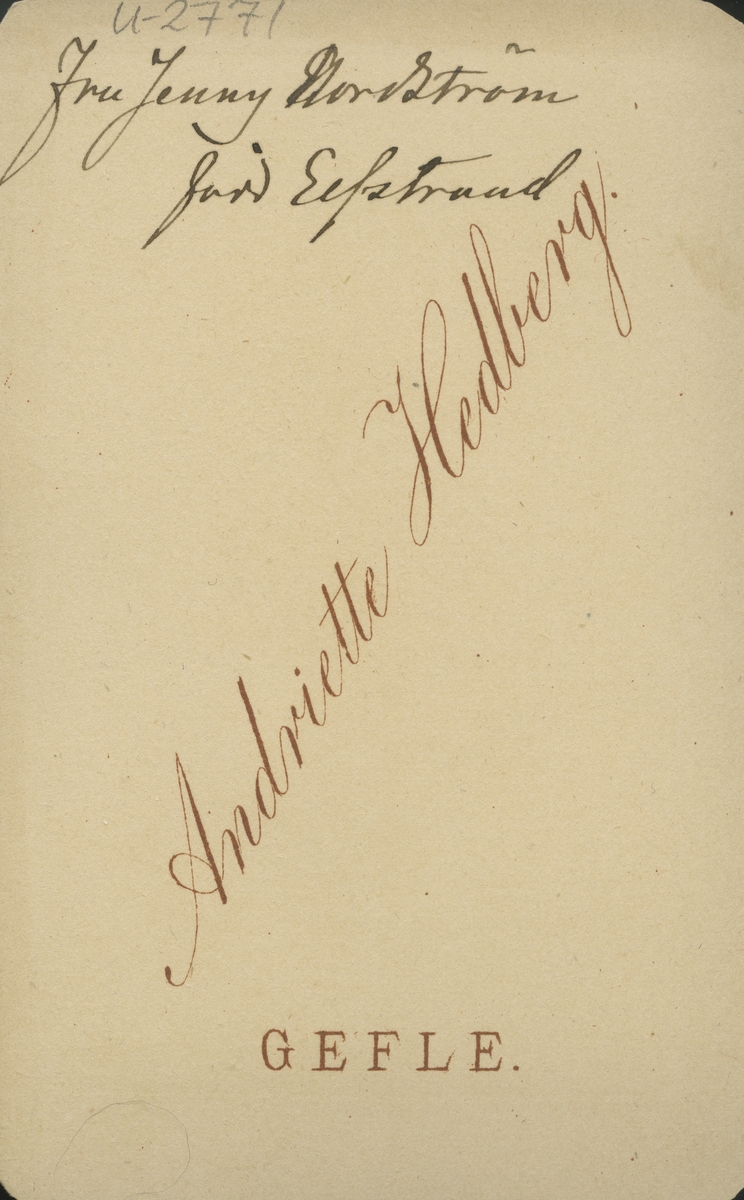 U-2771
Fru Jenny Nordström
född Elfstrand
Andriette Hedberg.
GEFLE.